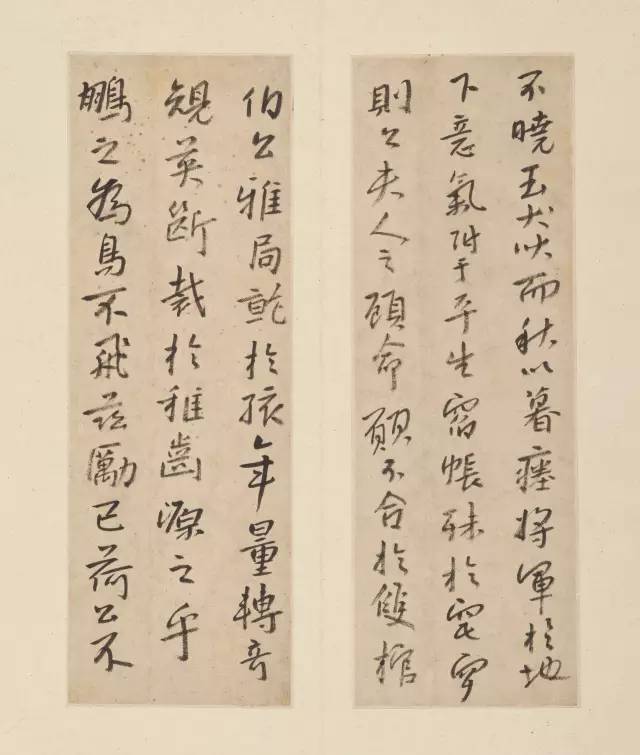 不曉玉犬吠而秋以暮瘞將軍於地
下意氣附于平生宿帳殊於窀穸
則公夫人之顧命願不合於雙棺
伯公雅局於孩年量轉奇
英斷裁於稚齒源之乎
鵬之為鳥不飛茲勵已荷公不